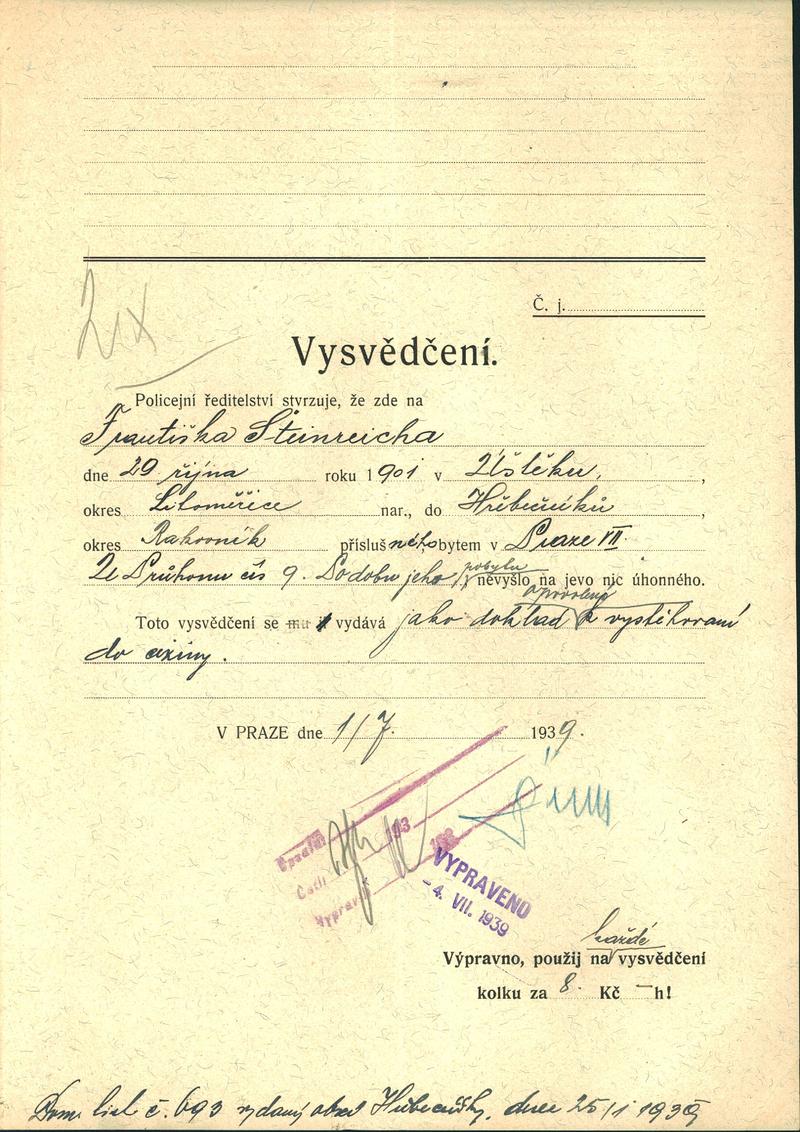 2ix
Č. j.
Vysvědčení.
Policejní ředitelství stvrzuje, že zde na
Františka Steinreicha
dne 29 října roku 1901 v Úštěku,
okres Litoměřice nar., do Hřebečníků
okres Rakovník příslušného bytem v Praze VII
Ze Průhonu čís 9. Po dobu jeho pobytu nevyšlo na jevo nic úhonného.
povolení
Toto vysvědčení se mu vydává jako doklad k vystěhování
do ciziny.
V PRAZE dne 1/7. 1939.
Vypravil
VYPRAVENO
-4. VII. 1939
každé
Výpravno, použij na vysvědčení
kolku za 8 Kč — h!
Dom. list č. 693 vydaný obcí Hřebečníky, dne 25/1 1939